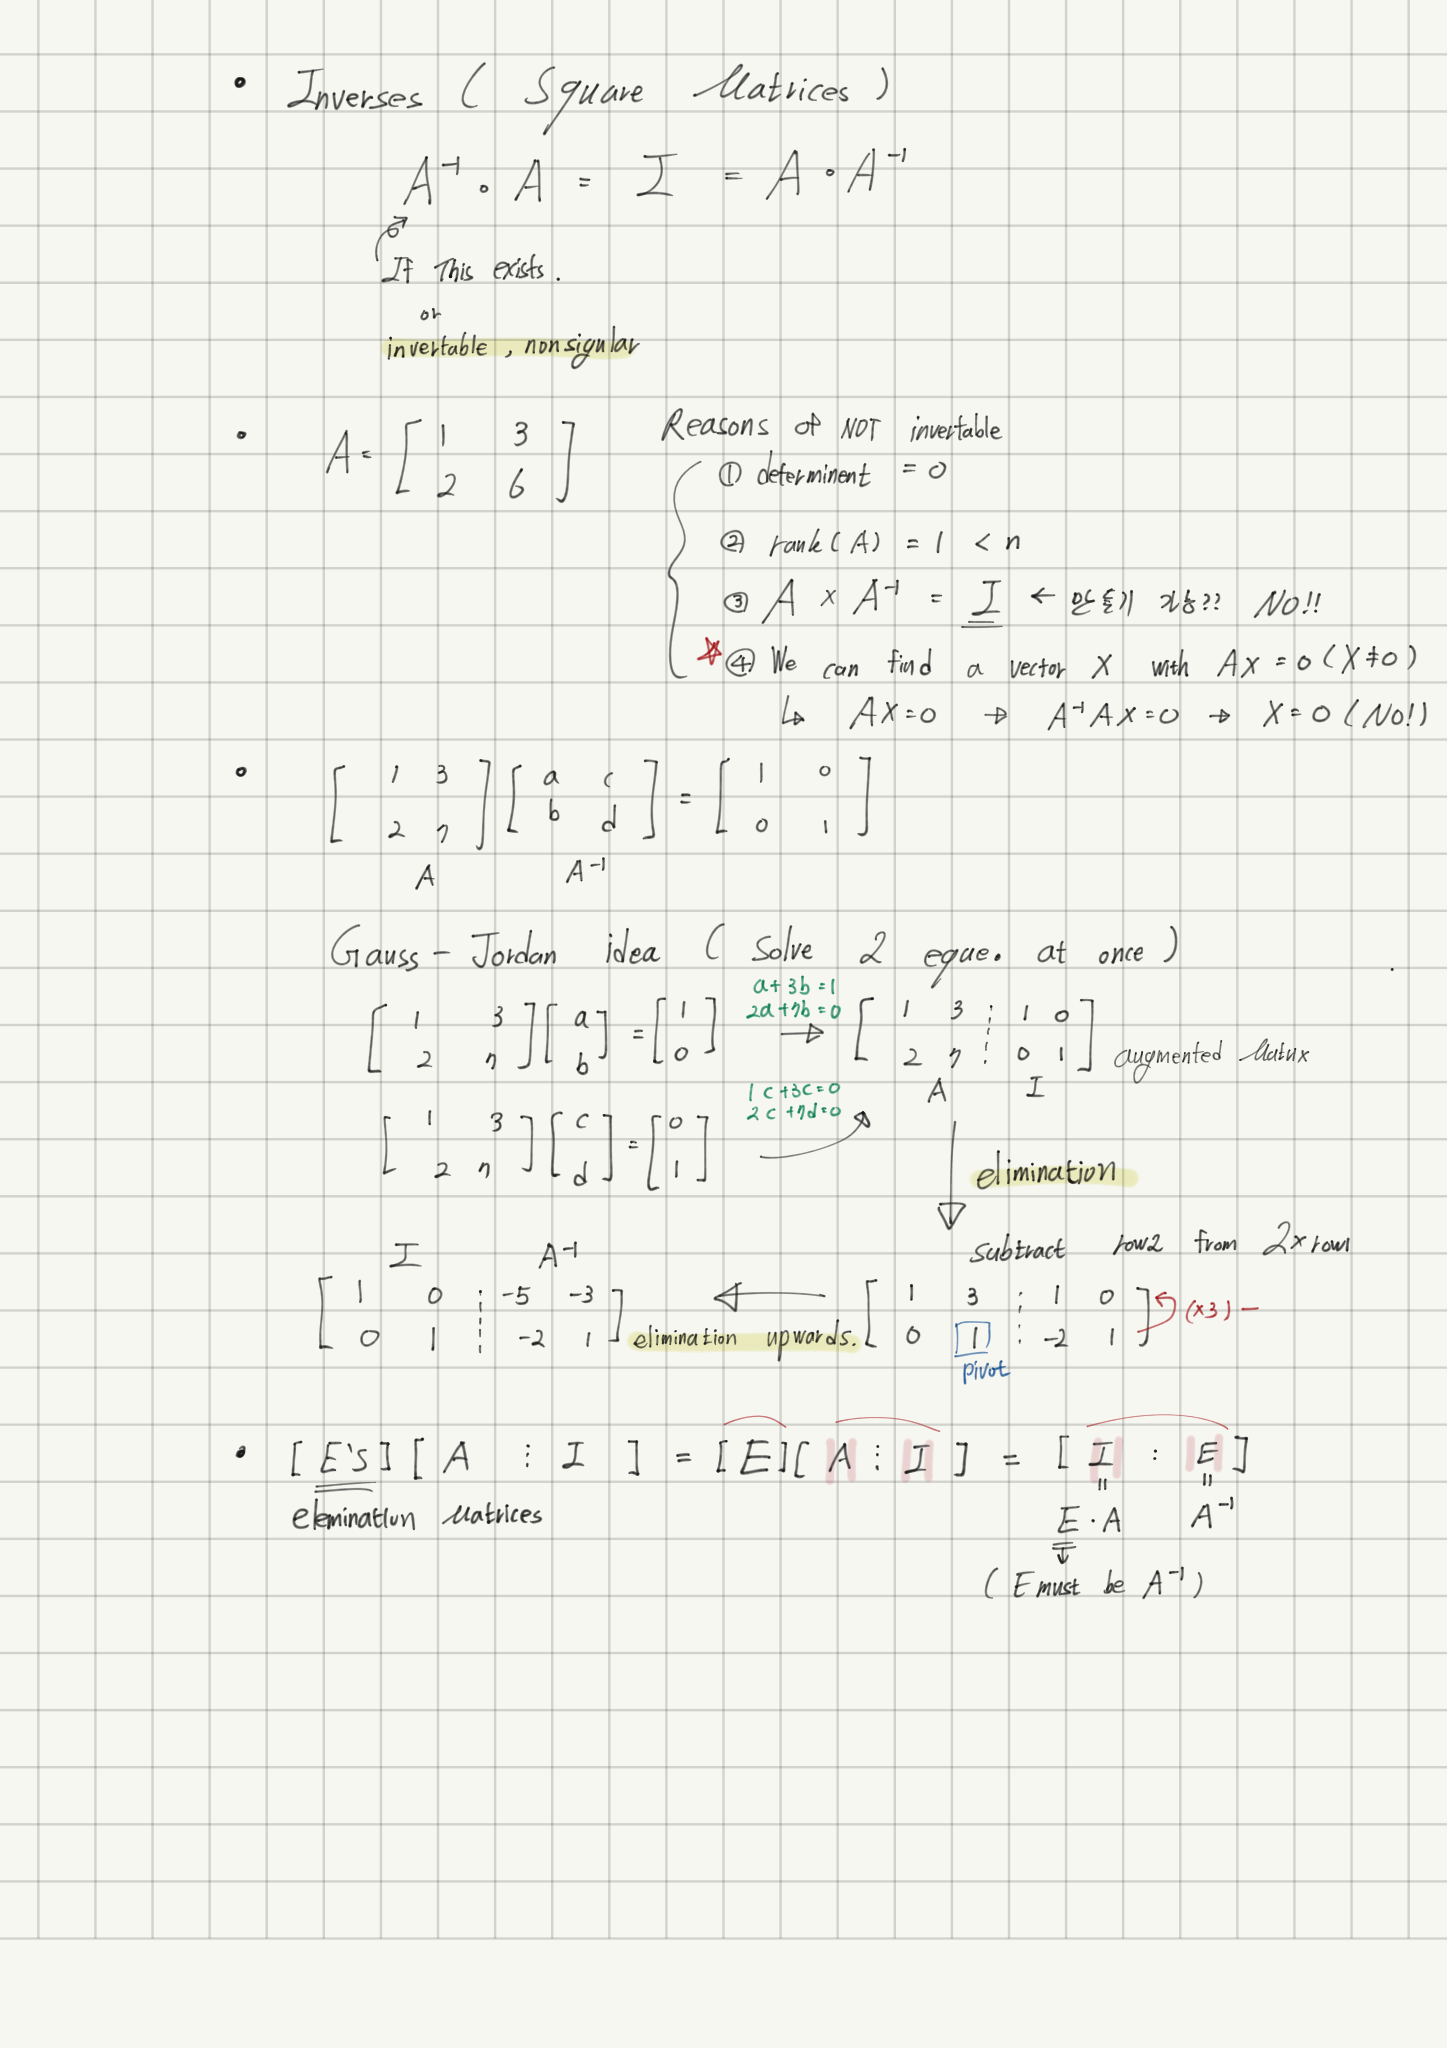 • Inverses ( Square Matrices )
A⁻¹ · A = I = A · A⁻¹
If This exists.
or
invertable, nonsigular
• A = [ 1 3 ; 2 6 ]
Reasons of NOT invertable
① determinent = 0
② rank(A) = 1 < n
③ A × A⁻¹ = I ← 만들기 가능?? NO!!
☆ ④ We can find a vector X with AX = 0 (X ≠ 0)
↳ AX = 0 → A⁻¹AX = 0 → X = 0 (No!)
• [ 1 3 ; 2 7 ] [ a c ; b d ] = [ 1 0 ; 0 1 ]
A A⁻¹
Gauss - Jordan idea ( Solve 2 eque. at once )
[ 1 3 ; 2 7 ] [ a ; b ] = [ 1 ; 0 ]
a + 3b = 1
2a + 7b = 0
→ [ 1 3 ⋮ 1 0 ; 2 7 ⋮ 0 1 ] augmented Matrix
A I
[ 1 3 ; 2 7 ] [ c ; d ] = [ 0 ; 1 ]
1c + 3c = 0
2c + 7d = 0
elimination
Subtract row2 from 2 × row1
[ 1 3 ⋮ 1 0 ; 0 1 ⋮ -2 1 ] (×3) -
pivot
← elimination upwards.
I A⁻¹
[ 1 0 ⋮ -5 -3 ; 0 1 ⋮ -2 1 ]
• [ E's ] [ A ⋮ I ] = [ E ] [ A ⋮ I ] = [ I : E ]
elemination Matrices
E · A A⁻¹
( E must be A⁻¹ )